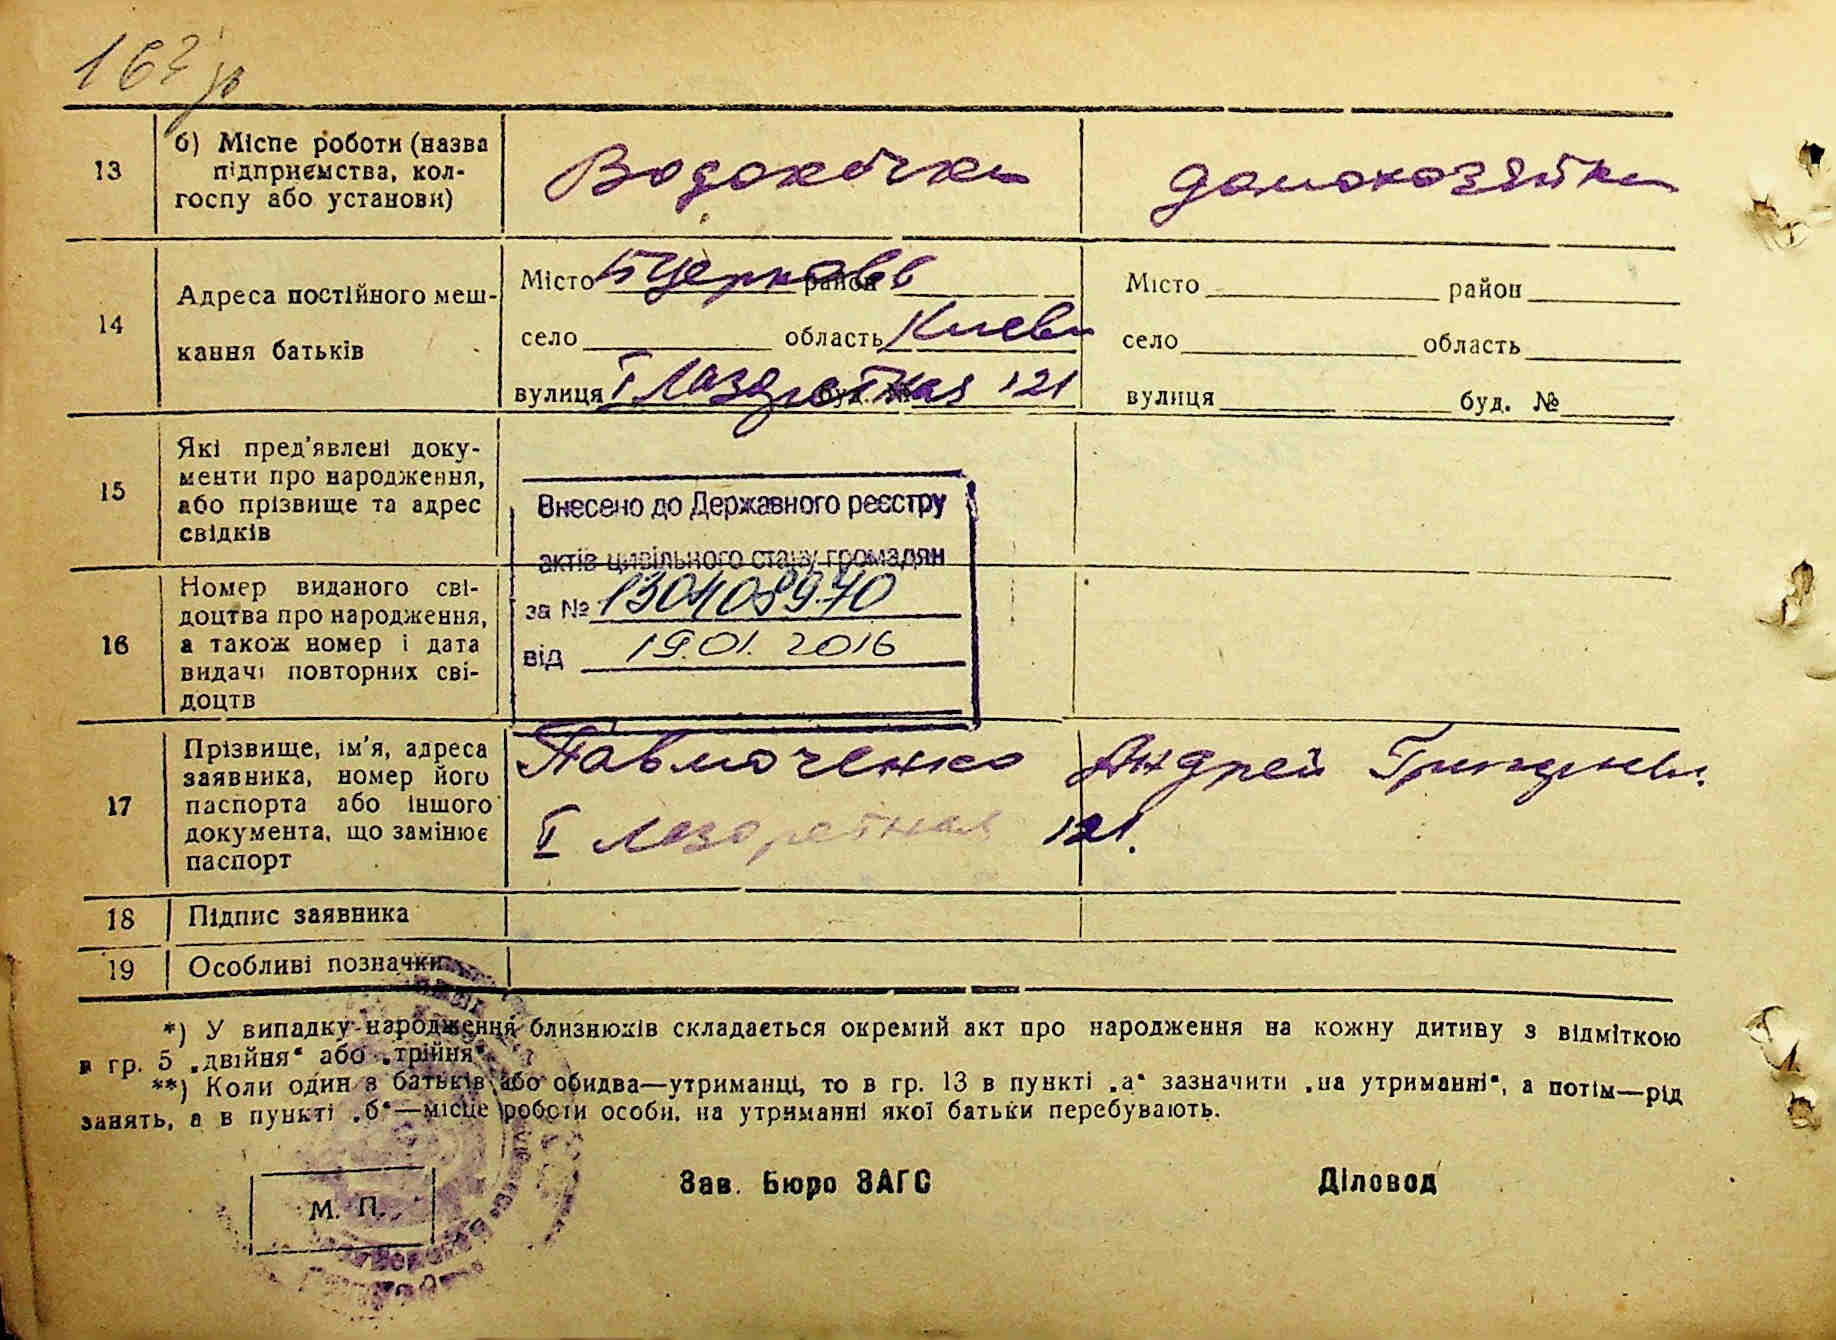 13 б) Місце роботи (назва
підприємства, кол-
госпу або установи)
Водокачка домохозяйка
14 Адреса постійного меш-
кання батьків
Місто Б Церковь район
село область Киевск
вулиця I Лазаретная буд. № 121
Місто район
село область
вулиця буд. №
15 Які пред'явлені доку-
менти про народження,
або прізвище та адрес
свідків
Внесено до Державного реєстру
актів цивільного стану громадян
за №
від 19.01.2016
16 Номер виданого сві-
доцтва про народження,
а також номер і дата
видачі повторних сві-
доцтв
17 Прізвище, ім'я, адреса
заявника, номер його
паспорта або іншого
документа, що замінює
паспорт
Андрей
I Лазаретная 121.
18 Підпис заявника
19 Особливі позначки
*) У випадку народження близнюків складається окремий акт про народження на кожну дитину з відміткою
в гр. 5 „двійня“ або „трійня“.
**) Коли один з батьків або обидва—утриманці, то в гр. 13 в пункті „а“ зазначити „на утриманні“, а потім—рід
занять, а в пункті „б“—місце роботи особи, на утриманні якої батьки перебувають.
Зав. Бюро ЗАГС Діловод
М. П.